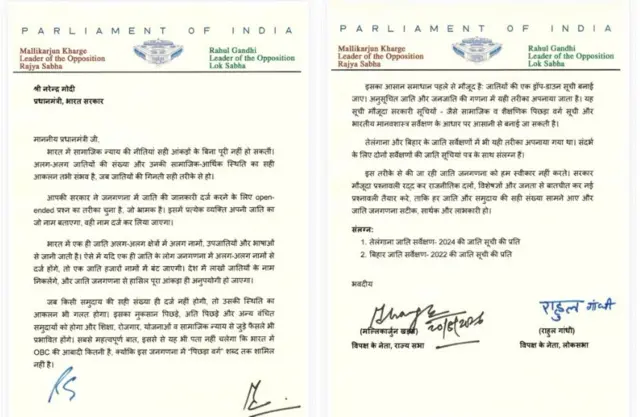 PARLIAMENT OF INDIA
Mallikarjun Kharge
Leader of the Opposition
Rajya Sabha
Rahul Gandhi
Leader of the Opposition
Lok Sabha
श्री नरेन्द्र मोदी
प्रधानमंत्री, भारत सरकार
माननीय प्रधानमंत्री जी,
भारत में सामाजिक न्याय की नीतियां सही आंकड़ों के बिना पूरी नहीं हो सकतीं।
अलग-अलग जातियों की संख्या और उनकी सामाजिक-आर्थिक स्थिति का सही
आकलन तभी संभव है, जब जातियों की गिनती सही तरीके से हो।
आपकी सरकार ने जनगणना में जाति की जानकारी दर्ज करने के लिए open-
ended प्रश्न का तरीका चुना है, जो भ्रामक है। इसमें प्रत्येक व्यक्ति अपनी जाति का
जो नाम बताएगा, वही नाम दर्ज कर लिया जाएगा।
भारत में एक ही जाति अलग-अलग क्षेत्रों में अलग नामों, उपजातियों और भाषाओं
से जानी जाती है। ऐसे में यदि एक ही जाति के लोग जनगणना में अलग-अलग नामों से
दर्ज होंगे, तो एक जाति हजारों नामों में बंट जाएगी। देश में लाखों जातियों के नाम
निकलेंगे, और जाति जनगणना से हासिल पूरा आंकड़ा ही अनुपयोगी हो जाएगा।
जब किसी समुदाय की सही संख्या ही दर्ज नहीं होगी, तो उसकी स्थिति का
आकलन भी गलत होगा। इसका नुकसान पिछड़े, अति पिछड़े और अन्य वंचित
समुदायों को होगा और शिक्षा, रोजगार, योजनाओं व सामाजिक न्याय से जुड़े फैसले भी
प्रभावित होंगे। सबसे महत्वपूर्ण बात, इससे से यह भी पता नहीं चलेगा कि भारत में
OBC की आबादी कितनी है, क्योंकि इस जनगणना में "पिछड़ा वर्ग" शब्द तक शामिल
नहीं है।
PARLIAMENT OF INDIA
Mallikarjun Kharge
Leader of the Opposition
Rajya Sabha
Rahul Gandhi
Leader of the Opposition
Lok Sabha
इसका आसान समाधान पहले से मौजूद है: जातियों की एक ड्रॉप-डाउन सूची बनाई
जाए। अनुसूचित जाति और जनजाति की गणना में यही तरीका अपनाया जाता है। यह
सूची मौजूदा सरकारी सूचियों - जैसे सामाजिक व शैक्षणिक पिछड़ा वर्ग सूची और
भारतीय मानवशास्त्र सर्वेक्षण के आधार पर आसानी से बनाई जा सकती है।
तेलंगाना और बिहार के जाति सर्वेक्षणों में भी यही तरीका अपनाया गया था। संदर्भ
के लिए दोनों सर्वेक्षणों की जाति सूचियां पत्र के साथ संलग्न हैं।
इस तरीके से की जा रही जाति जनगणना को हम स्वीकार नहीं करते। सरकार
मौजूदा प्रश्नावली रद्द कर राजनीतिक दलों, विशेषज्ञों और जनता से बातचीत कर नई
प्रश्नावली तैयार करे, ताकि हर जाति और समुदाय की सही संख्या सामने आए और
जाति जनगणना सटीक, सार्थक और लाभकारी हो।
संलग्न:
1. तेलंगाना जाति सर्वेक्षण- 2024 की जाति सूची की प्रति
2. बिहार जाति सर्वेक्षण- 2022 की जाति सूची की प्रति
भवदीय
राहुल गांधी
(मल्लिकार्जुन खड़गे)
(राहुल गांधी)
विपक्ष के नेता, राज्य सभा
विपक्ष के नेता, लोकसभा